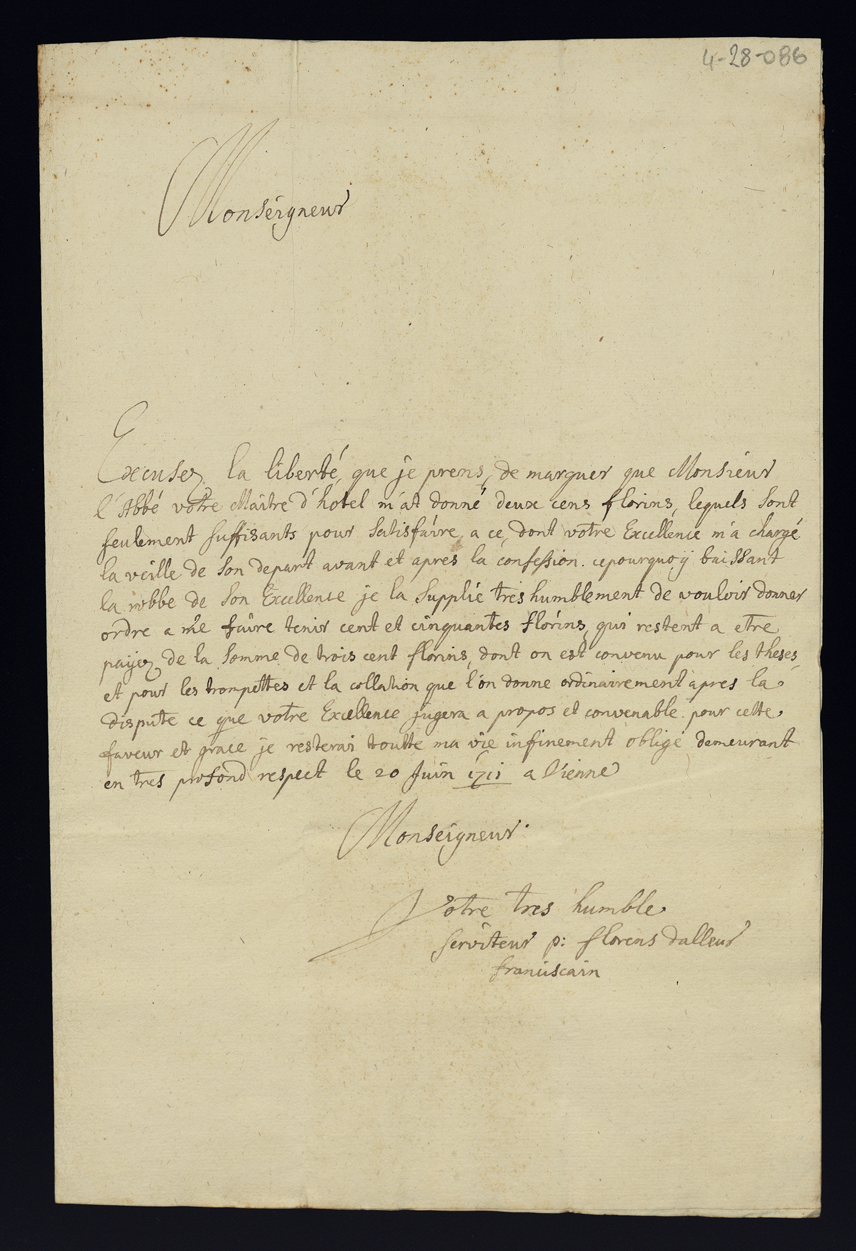 4-28-086
Monseigneur
Excusez la liberté, que je prens, de marquer que Monsieur
l'Abbé votre Maitre d'hotel m'at donné deux cens florins, lequels sont
seulement suffisants pour satisfaire a ce, dont votre Excellence m'a chargé
la veille de son depart avant et apres la confession. cepourquoÿ baissant
la robbe de son Excellence je la supplie tres humblement de vouloir donner
ordre a me faire tenir cent et cinquantes florins, qui restent a etre
payez de la somme de trois cent florins, dont on est convenu pour les theses
et pour les trompettes et la collation que l'on donne ordinairement apres la
dispute ce que votre Excellence jugera a propos et convenable. pour cette
faveur et grace je resterai toutte ma vie infinement obligé demeurant
en tres profond respect le 20 Juin 1711 a Vienne
Monseigneur
Votre tres humble
serviteur p: florens dalleur
franciscain